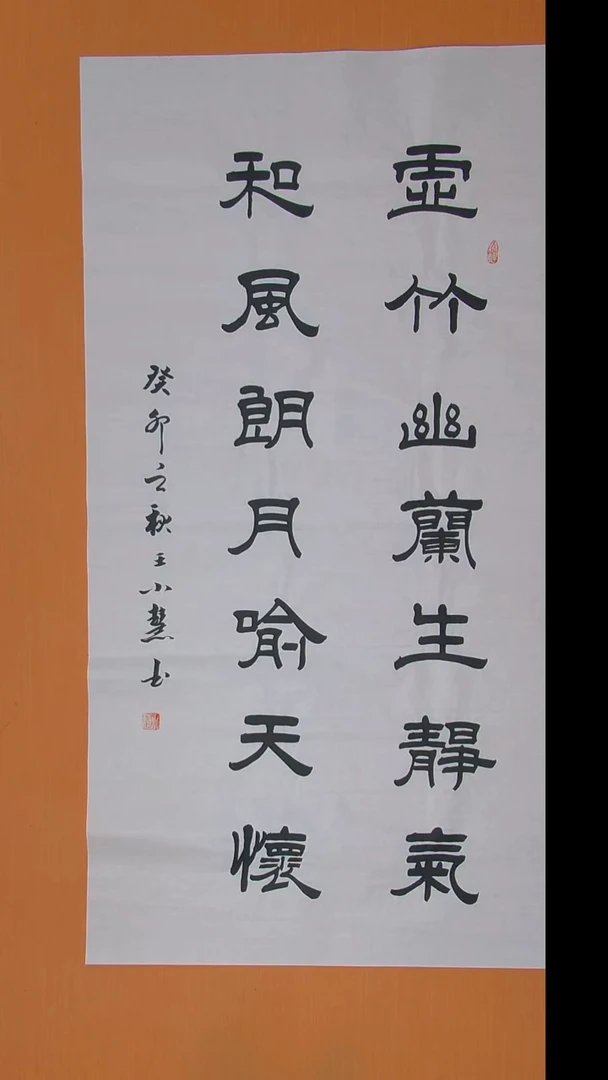 虛竹幽蘭生靜氣
和風朗月喻天懷
癸卯立秋王小慧书